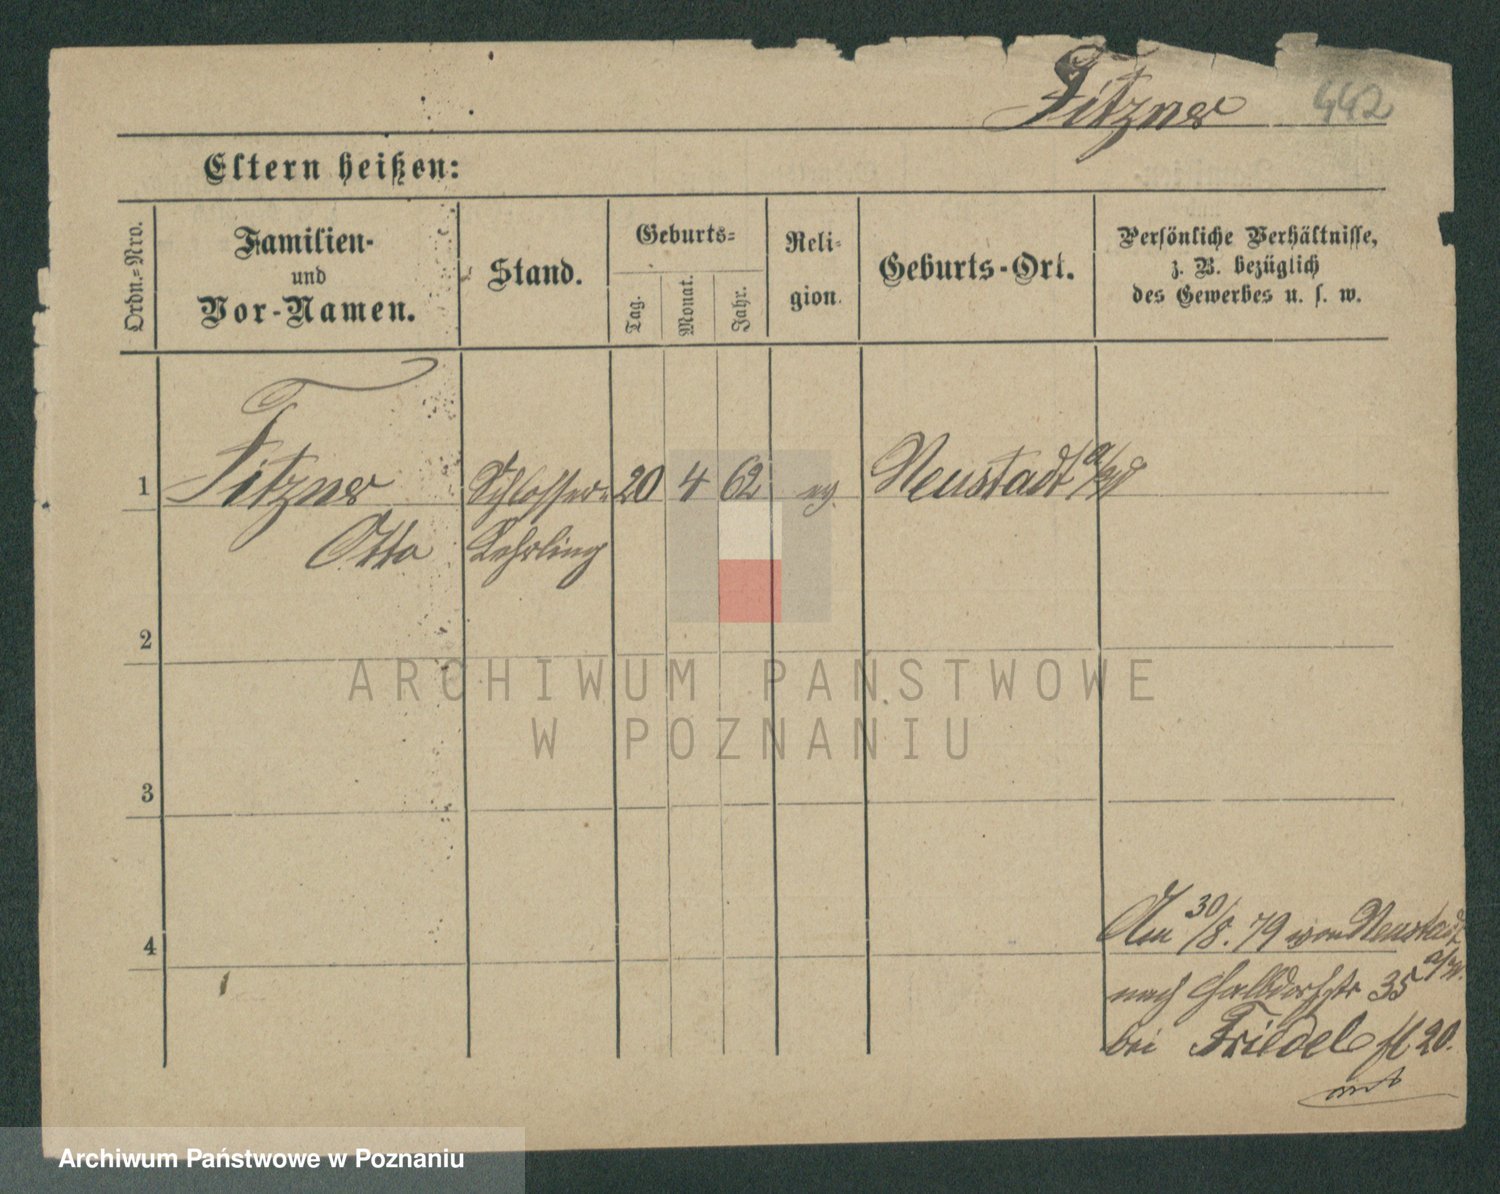 Fitzner 442
Eltern heißen:
Ordn.=Nro.
Familien-
und
Vor-Namen.
Stand.
Geburts=
Tag.
Monat.
Jahr.
Reli-
gion.
Geburts-Ort.
Persönliche Verhältnisse,
z. B. bezüglich
des Gewerbes u. s. w.
1 Fitzner Schlosser- 20 4 62 ev. Neustadt a/W
Otto Lehrling
2
3
4
Am 30/8. 79 von Neustadt
a/W.
nach Halbdorfstr 35
bei Friedel
20.
ARCHIWUM PAŃSTWOWE
W POZNANIU
Archiwum Państwowe w Poznaniu